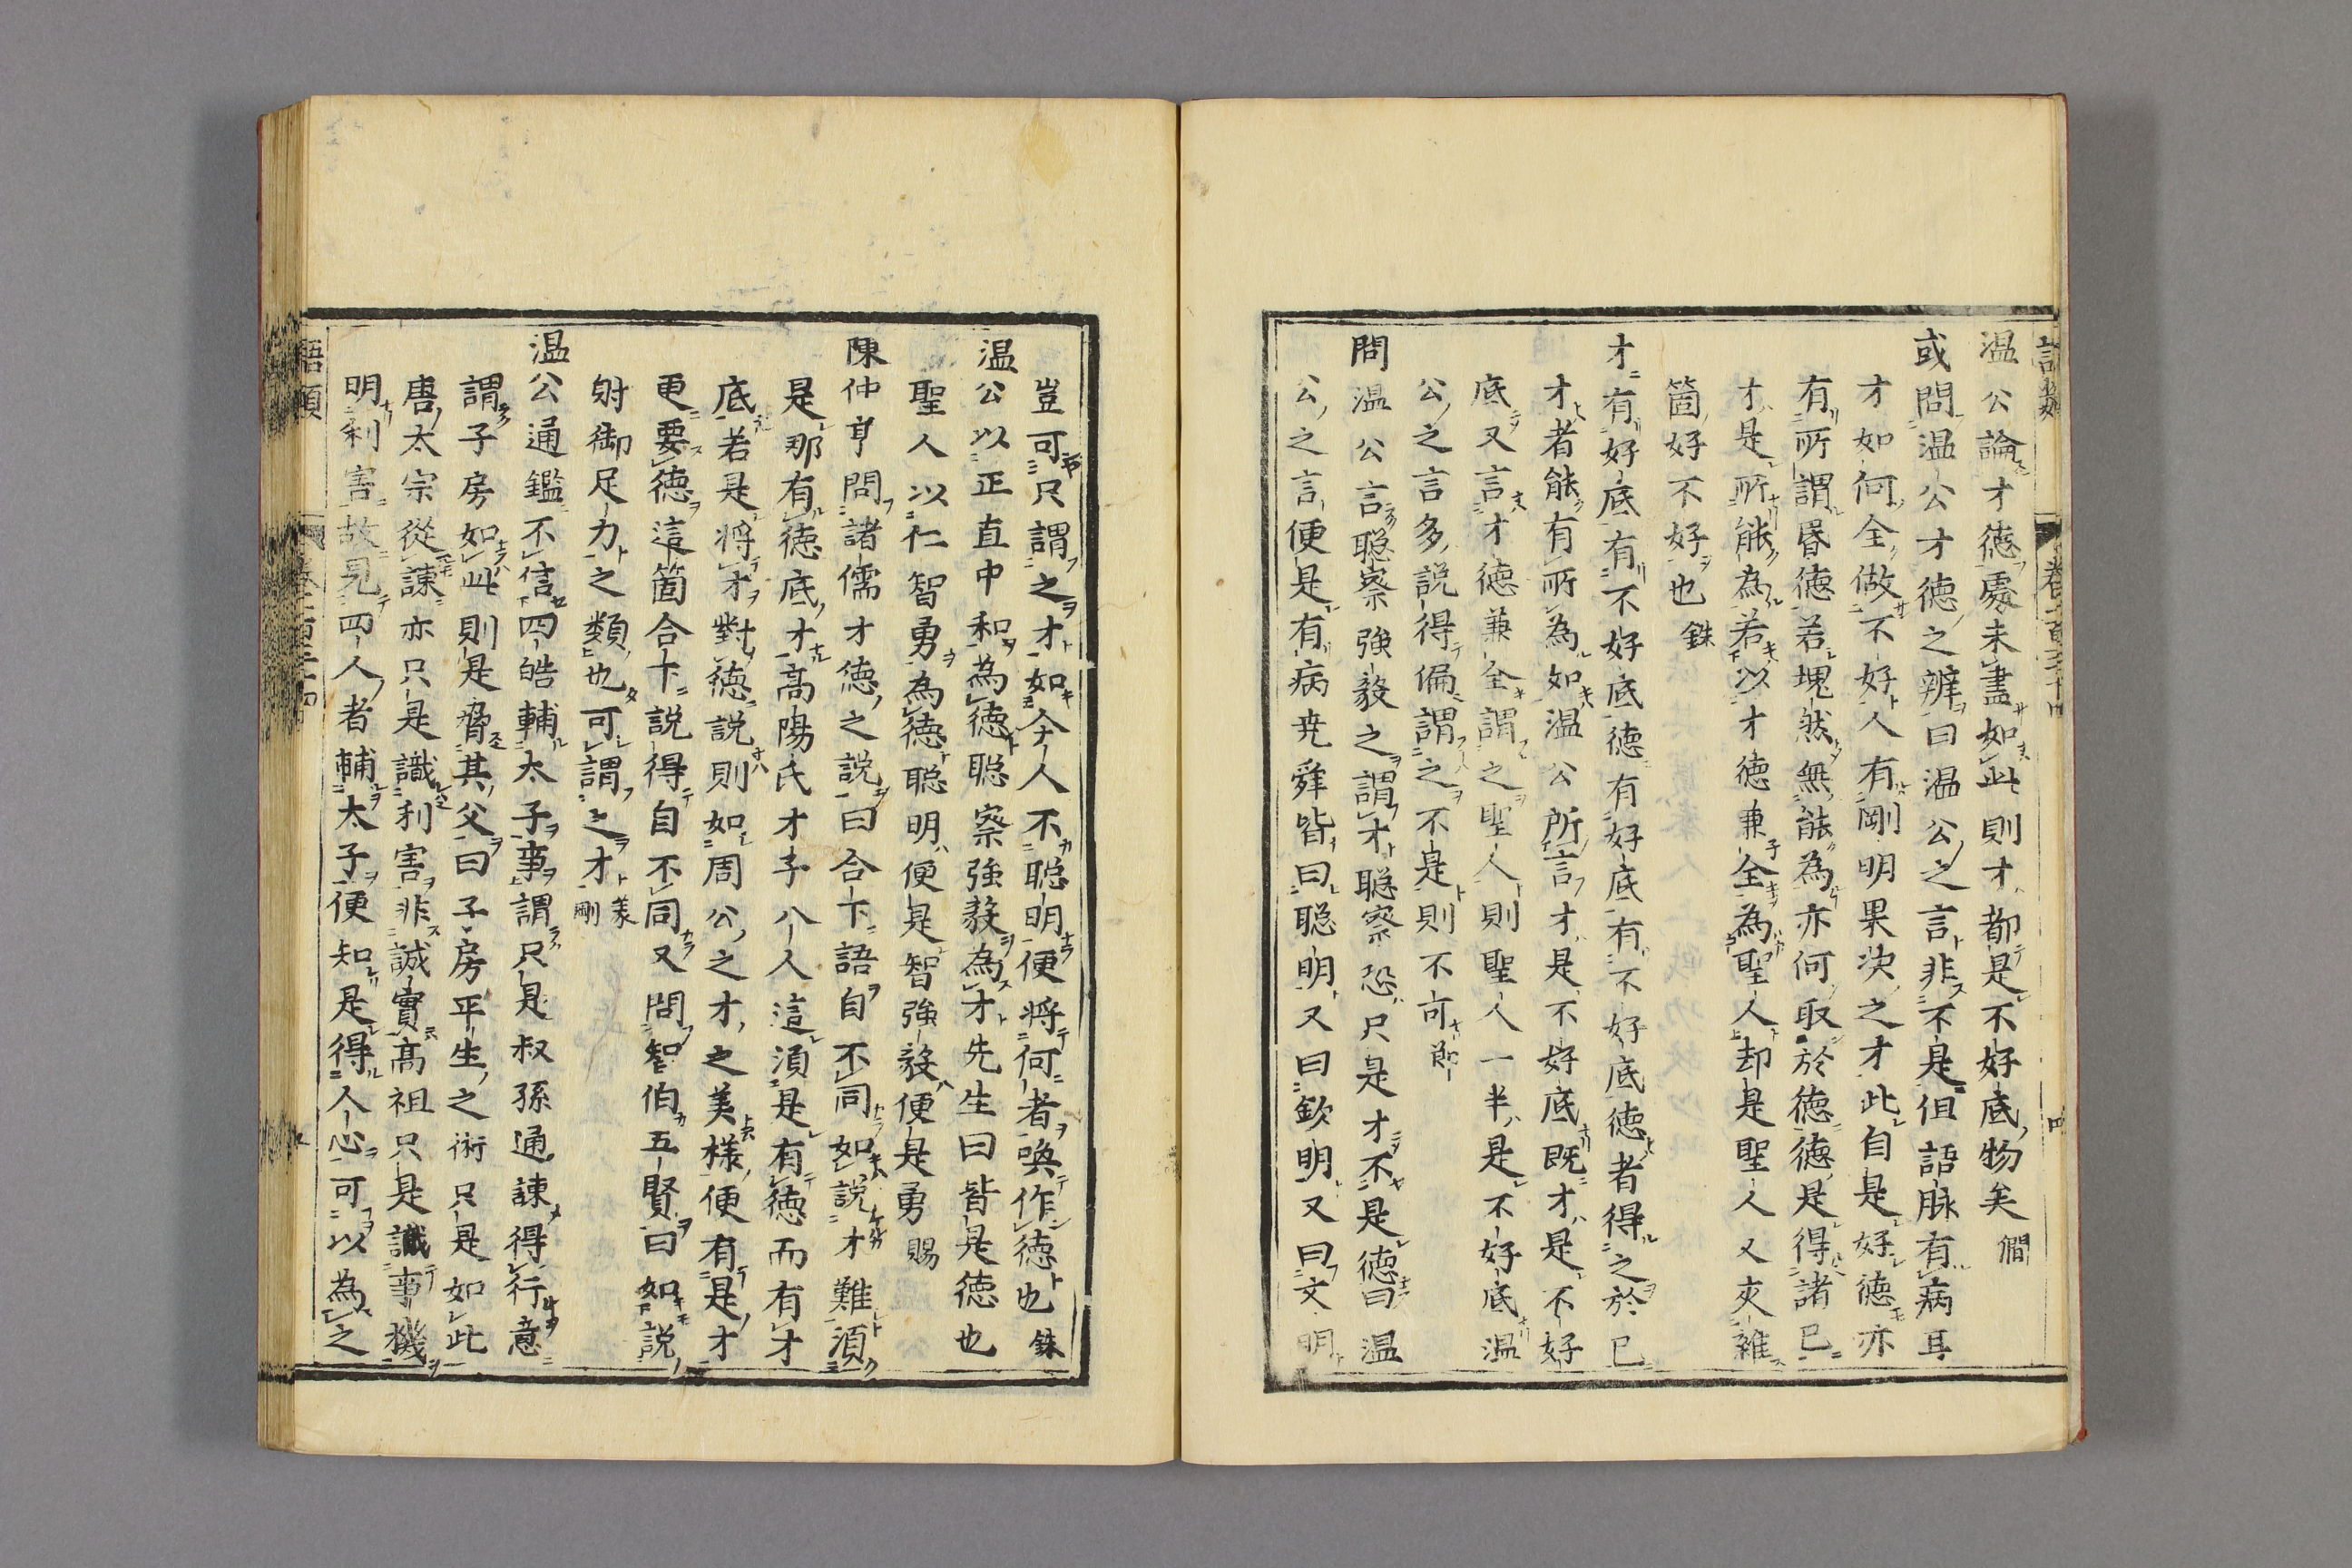 温公論才徳處未盡如此則才都是不好底物矣 僩
或問温公才徳之辨曰温公之言非不是但語脉有病耳
才如何全做不好人有剛明果决之才此自是好徳亦
有所謂昬徳若塊然無能為亦何取於徳徳是得諸已
才是所能為若以才徳兼全為聖人却是聖人又夾雜
箇好不好也 銖
才有好底有不好底徳有好底有不好底徳者得之於已
才者能有所為如温公所言才是不好底既才是不好
底又言才徳兼全謂之聖人則聖人一半是不好底温
公之言多説得偏謂之不是則不可 節
問温公言聡察強毅之謂才聡察恐只是才不是徳曰温
公之言便是有病尭舜皆曰聡明又曰欽明又曰文明
豈可只謂之才如今人不聡明便將何者喚作徳也 銖
温公以正直中和為徳聡察強毅為才先生曰皆是徳也
聖人以仁智勇為徳聡明便是智強毅便是勇 賜
陳仲亨問諸儒才徳之説曰合下語自不同如説才難須
是那有徳底才高陽氏才子八人這須是有徳而有才
底若是將才對徳説則如周公之才之美様便有是才
更要徳這箇合下説得自不同又問智伯五賢曰如説
射御足力之類也可謂之才 義剛
温公通鑑不信四皓輔太子事謂只是叔孫通諫得行意
謂子房如此則是脅其父曰子房平生之術只是如此
唐太宗從諫亦只是識利害非誠實高祖只是識事機
明利害故見四人者輔太子便知是得人心可以為之
語類